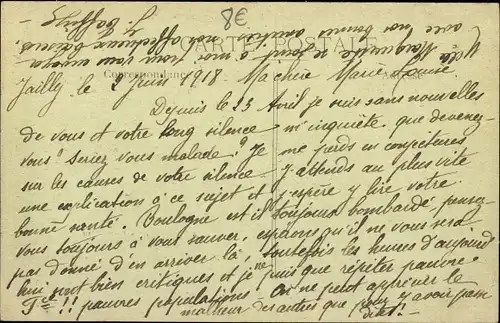 8€
CARTE POSTALE
Correspondance
Jailly le 2 Juin 1918 Ma chère Marie Louise
Depuis le 23 Avril je suis sans nouvelles
de vous et votre long silence m'inquiète que devenez-
vous ? Seriez vous malade ? Je me perds en conjectures
sur les causes de votre silence - J'attends au plus vite
une explication à ce sujet et j'espère y lire votre
bonne santé. Boulogne est il toujours bombardé, pensez-
vous toujours à vous sauver, espérons qu'il ne vous sera
pas donné d'en arriver là, toutefois les heures d'aujourd
hui sont bien critiques et je ne puis que répéter pauvre
F ce !! pauvres populations On ne peut apprécier le
malheur des autres que pour y avoir passé
dit-!
Marguerite se joint à moi pour vous envoyer
avec nos bonnes amitiés nos affectueux baisers